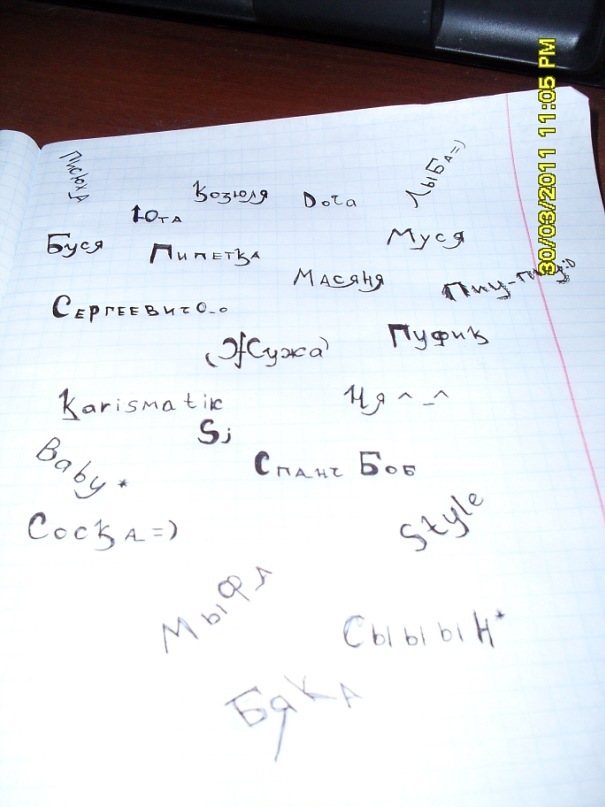 Писюха
Козюля
Doча
Лыба=)
Юта
Буся
Пипетка
Муся
Масяня
Пиу-пиу:D
Сергеевич О_о
(Жужа)
Пуфик
Karismatik
Ня ^_^
Sj
Baby *
Спанч Боб
Соска=)
Style
Мыфа
Сыыын*
Бяка
30/03/2011 11:05 PM